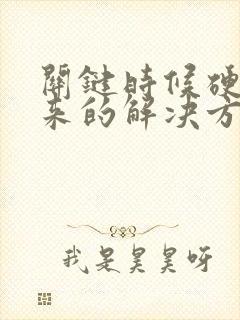 關鍵時候硬
來的解決方
我是昊昊呀